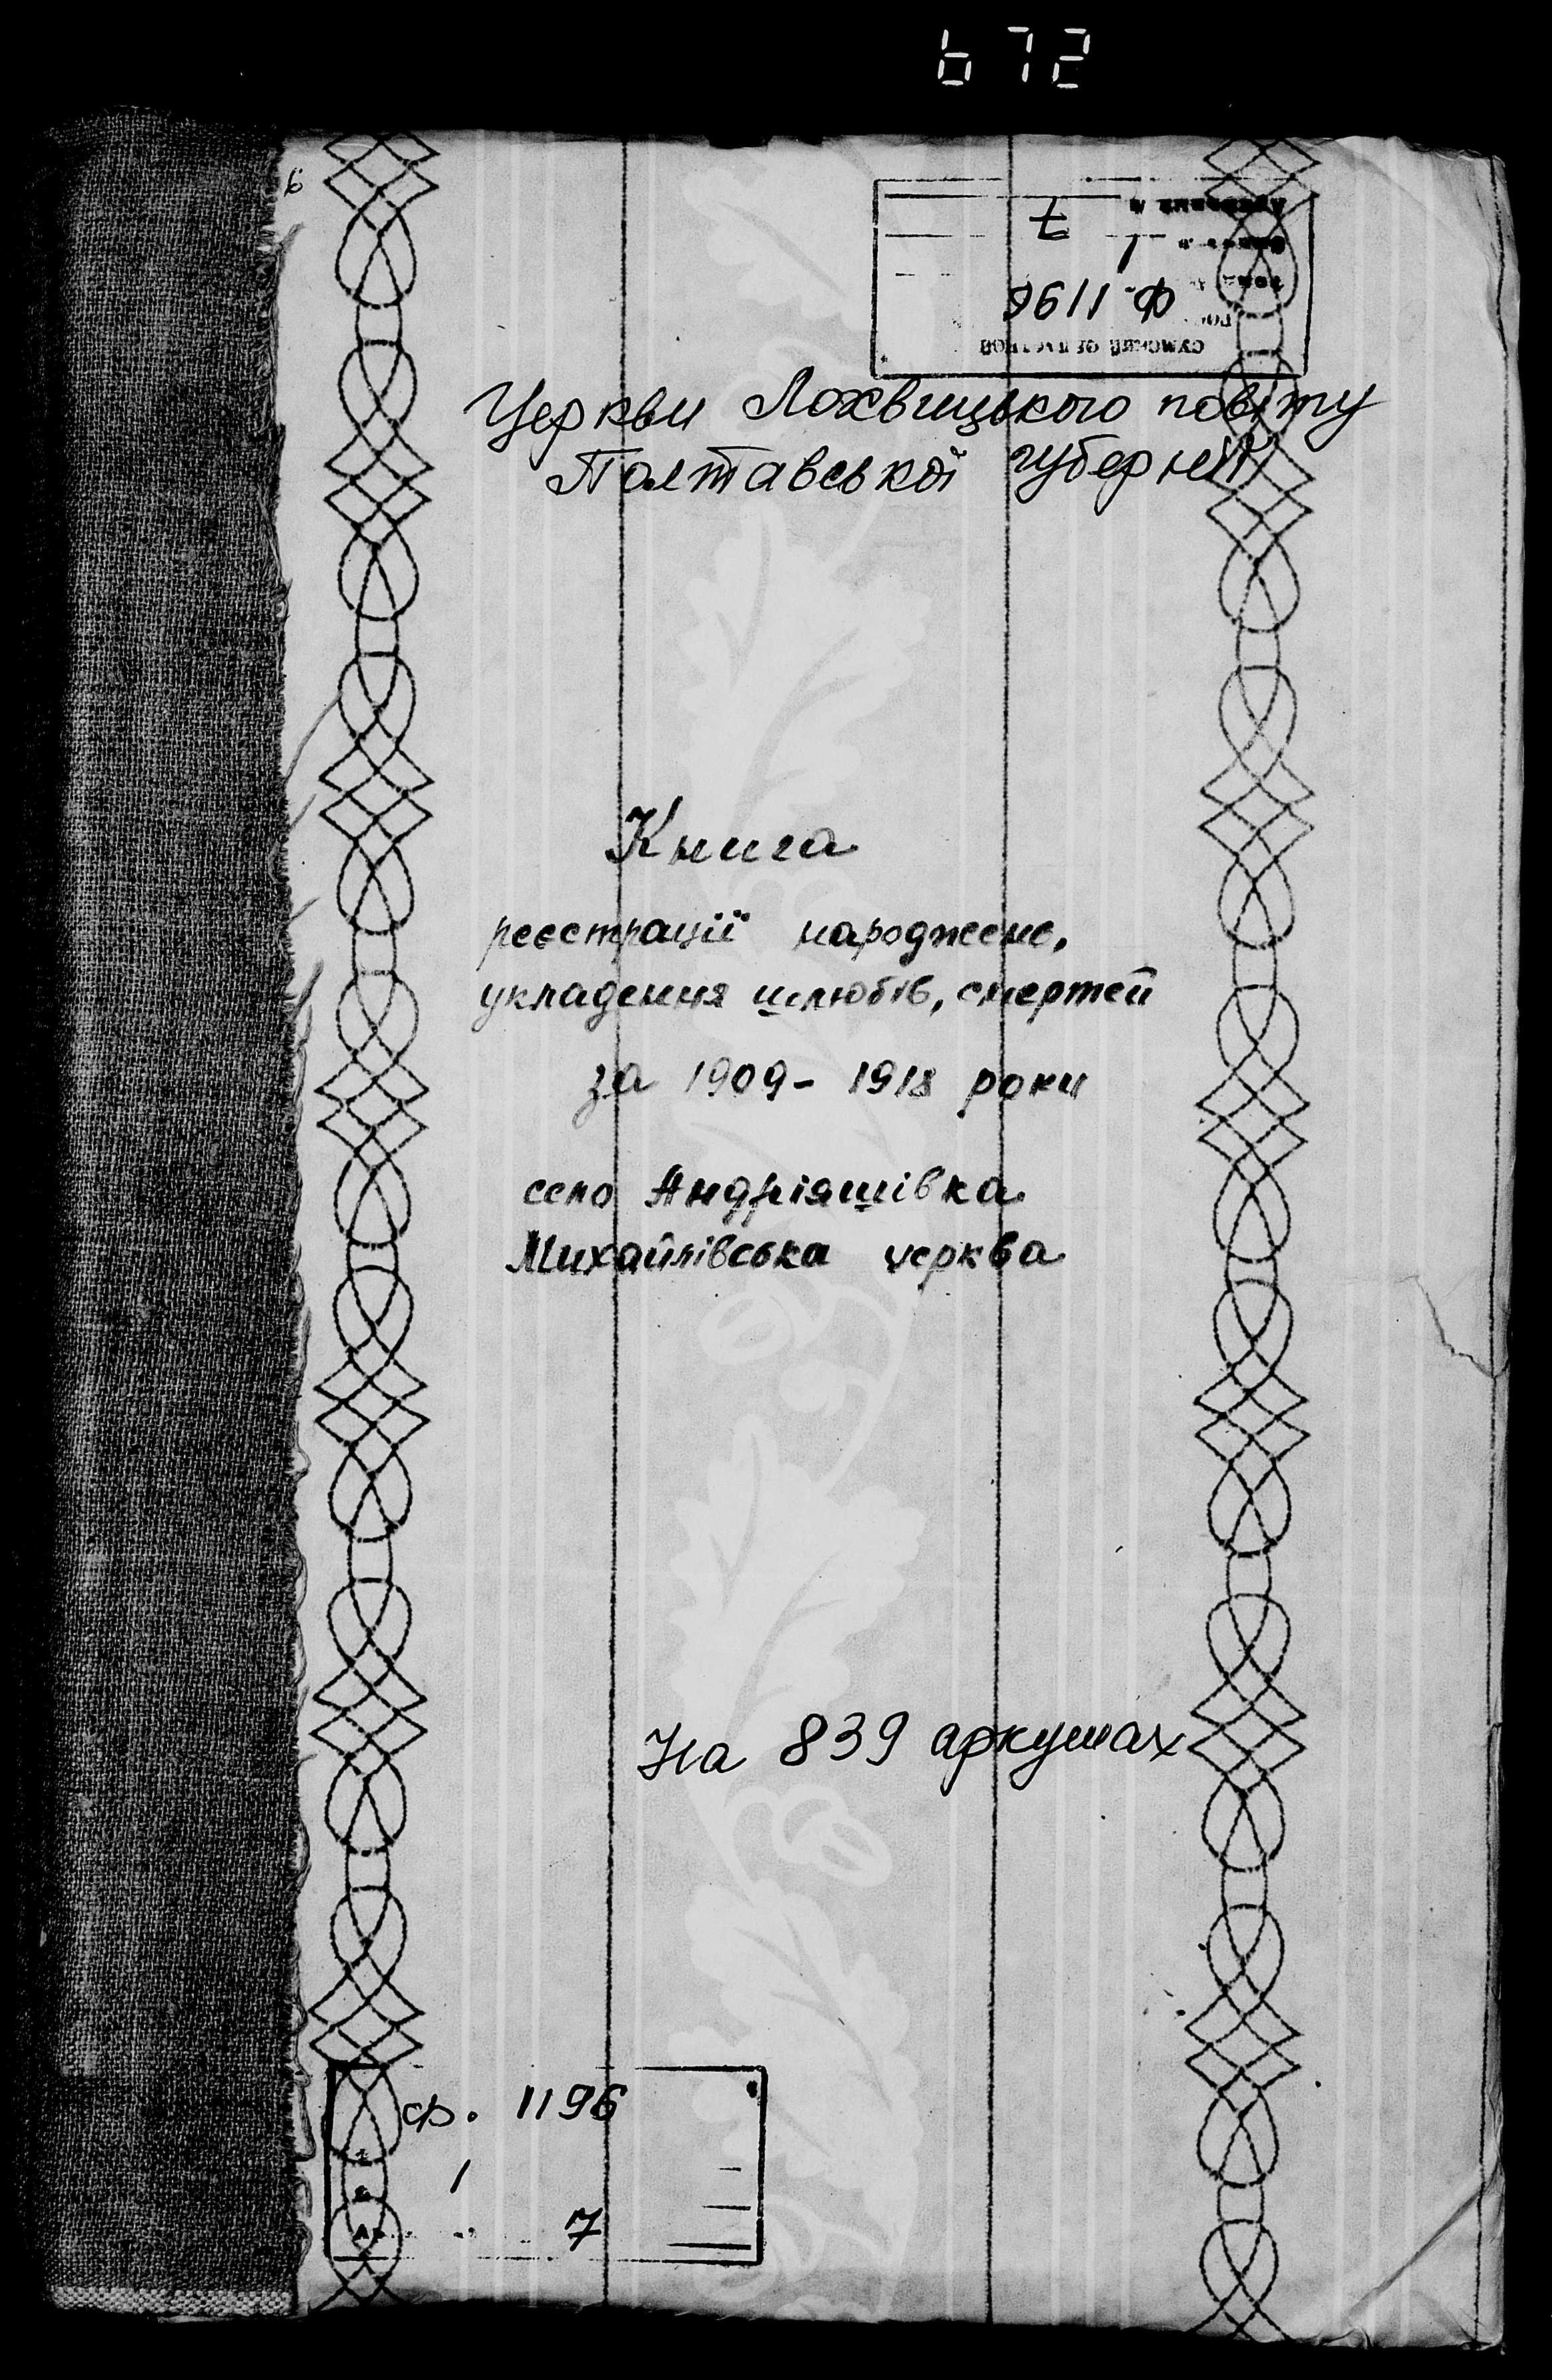 672
6
7
1
Ф. 1196
СУМСКИЙ ОБЛАСТНОЙ
Церкви Лохвицького повіту
Полтавської губернії
Книга
реєстрації народжень,
укладення шлюбів, смертей
за 1909 - 1918 роки
село Андріяшівка
Михайлівська церква
На 839 аркушах
ф. 1196
1
7